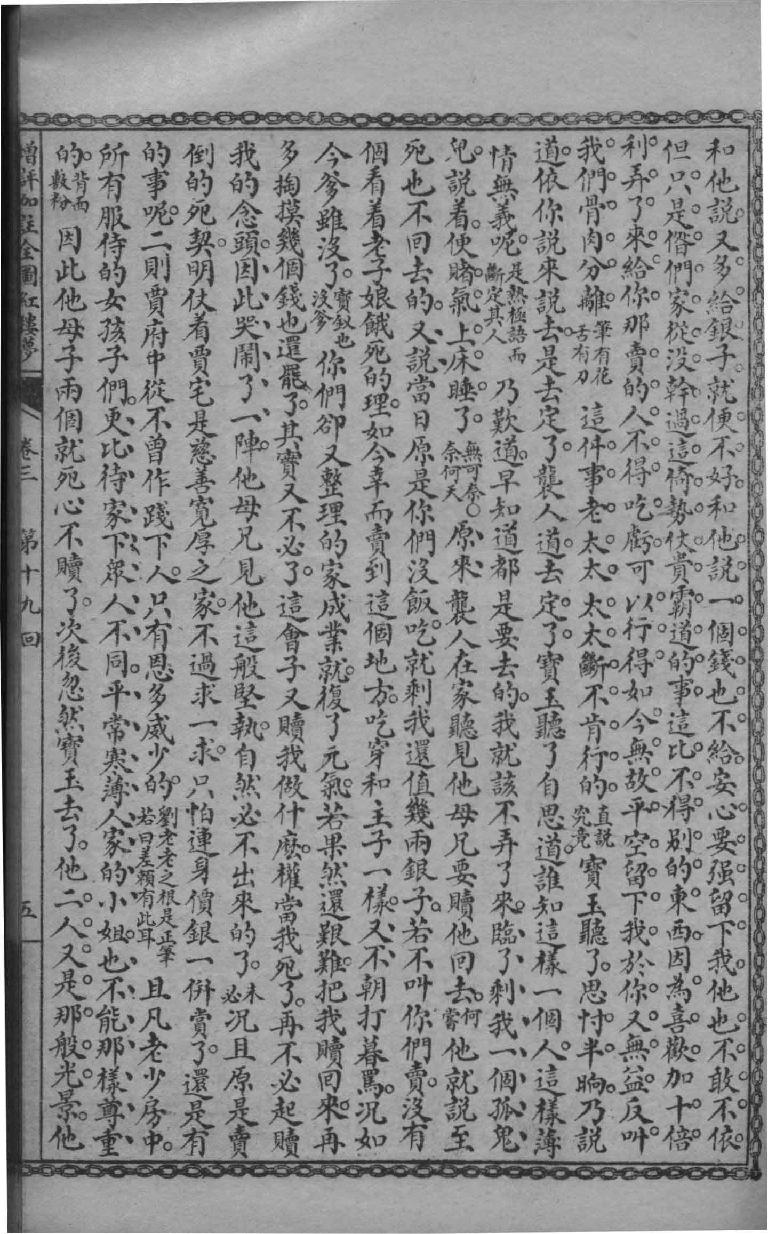 和他說又多給銀子就便不好和他說一個錢也不給安心要强留下我他也不敢不依
但只是偺們家從没幹過這倚勢仗貴霸道的事這比不得别的東西因為喜歡加十倍
利弄了來給你那賣的人不得吃虧可以行得如今無故平空留下我於你又無益反叫
我們骨肉分離筆有花舌有刀這件事老太太太太斷不肯行的直説究竟寶玉聽了思忖半晌乃説
道依你説來説去是去定了襲人道去定了寶玉聽了自思道誰知這樣一個人這樣薄
情無義呢是熱極語而斷定其人乃歎道早知道都是要去的我就該不弄了來臨了剩我一個孤鬼
兒説着便賭氣上床睡了無可奈○奈何天原來襲人在家聽見他母兄要贖他回去何嘗他就説至
死也不回去的又説當日原是你們沒飯吃就剩我還值幾兩銀子若不叫你們賣沒有
個看着老子娘餓死的理如今幸而賣到這個地方吃穿和主子一樣又不朝打暮罵况如
今爹雖沒了寶釵也沒爹你們卻又整理的家成業就復了元氣若果然還艱難把我贖回來再
多掏摸幾個錢也還罷了其實又不必了這會子又贖我做什麽權當我死了再不必起贖
我的念頭因此哭鬧了一陣他母兄見他這般堅執自然必不出來的了未必况且原是賣
倒的死契明仗着賈宅是慈善寬厚之家不過求一求只怕連身價銀一併賞了還是有
的事呢二則賈府中從不曾作踐下人只有恩多威少的劉老老之根是正筆若曰差賴有此耳且凡老少房中
所有服侍的女孩子們更比待家下眾人不同平常寒薄人家的小姐也不能那樣尊重
的背面敷粉因此他母子兩個就死心不贖了次後忽然寶玉去了他二人又是那般光景他
增評加註全圖紅樓夢
卷三
第十九回
五